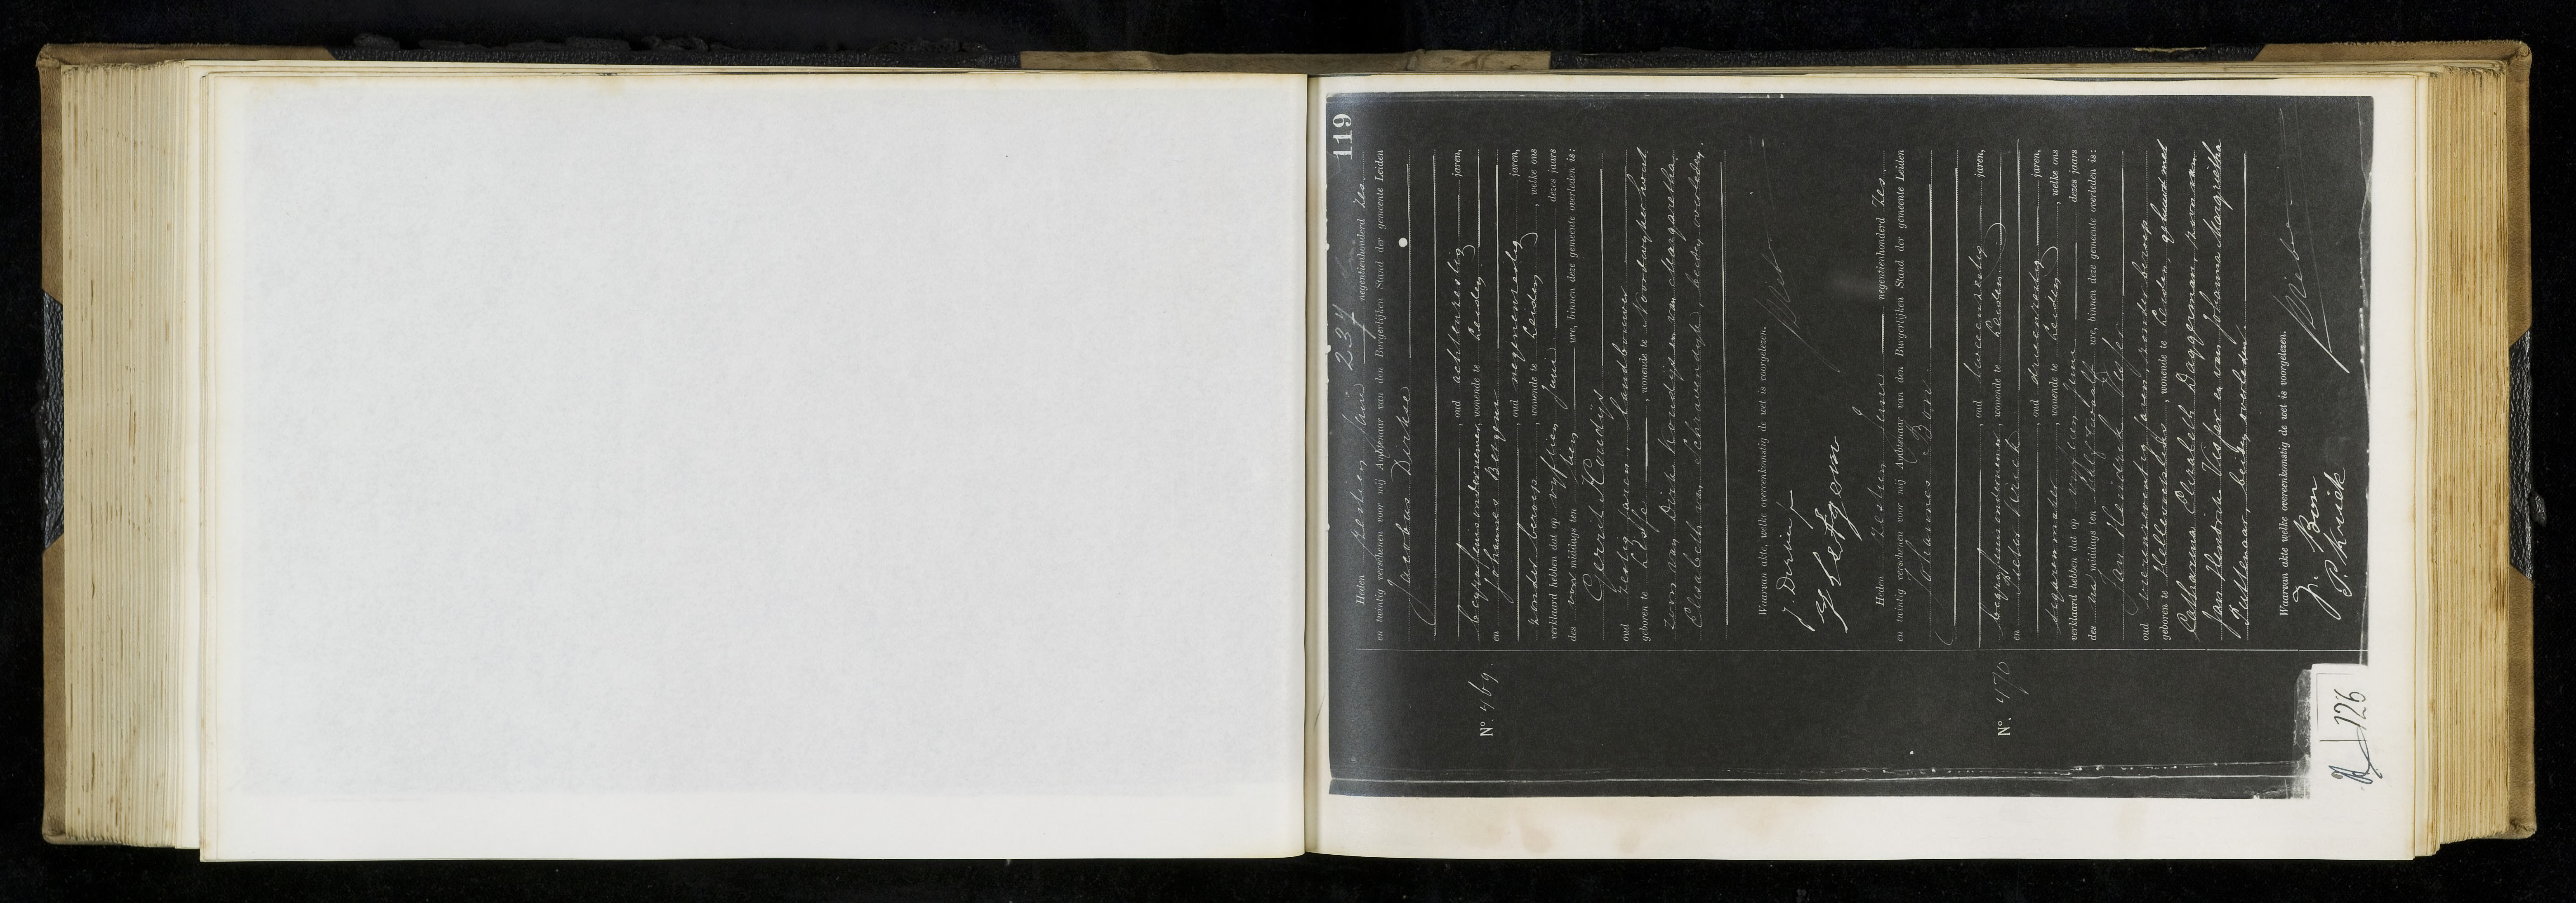 119
237
Heden zestien Juni negentienhonderd zes
en twintig verschenen voor mij Ambtenaar van den Burgerlijken Stand der gemeente Leiden
Jacobus Dirkse
, oud achtenzestig jaren,
begrafenisondernemer, wonende te Leiden
en Johannes
, oud negenenzestig jaren,
zonder beroep, wonende te Leiden, welke ons
verklaard hebben dat op vijftien Juni dezes jaars
des voor middags ten tien ure, binnen deze gemeente overleden is:
Gerrit Koudijs
oud zestig jaren, landbouwer
geboren te Lisse, wonende te Noordwijkerhout
zoon van Dirk Koudijs en van Margaretha
Elisabeth van Schravendijk, beiden overleden.
Waarvan akte, welke overeenkomstig de wet is voorgelezen.
Nº. 469.
Heden zestien Juni negentienhonderd zes
en twintig verschenen voor mij Ambtenaar van den Burgerlijken Stand der gemeente Leiden
Johannes Bon
, oud tweeenzestig jaren,
begrafenisondernemer, wonende te Leiden
en Pieter Kriek
, oud drieenzestig jaren,
sigarenmaker, wonende te Leiden, welke ons
verklaard hebben dat op vijftien Juni dezes jaars
des na middags ten half twaalf ure, binnen deze gemeente overleden is:
Jan Hendrik
oud vierenzeventig jaren, zonder beroep
geboren te Hellevoetsluis, wonende te Leiden, gehuwd met
Catharina Elizabeth Daggerman, zoon van
Jan Hendrik en van Johanna Margrietha
beiden overleden.
Waarvan akte welke overeenkomstig de wet is voorgelezen.
J. Bon
P. Kriek
Nº. 470
126